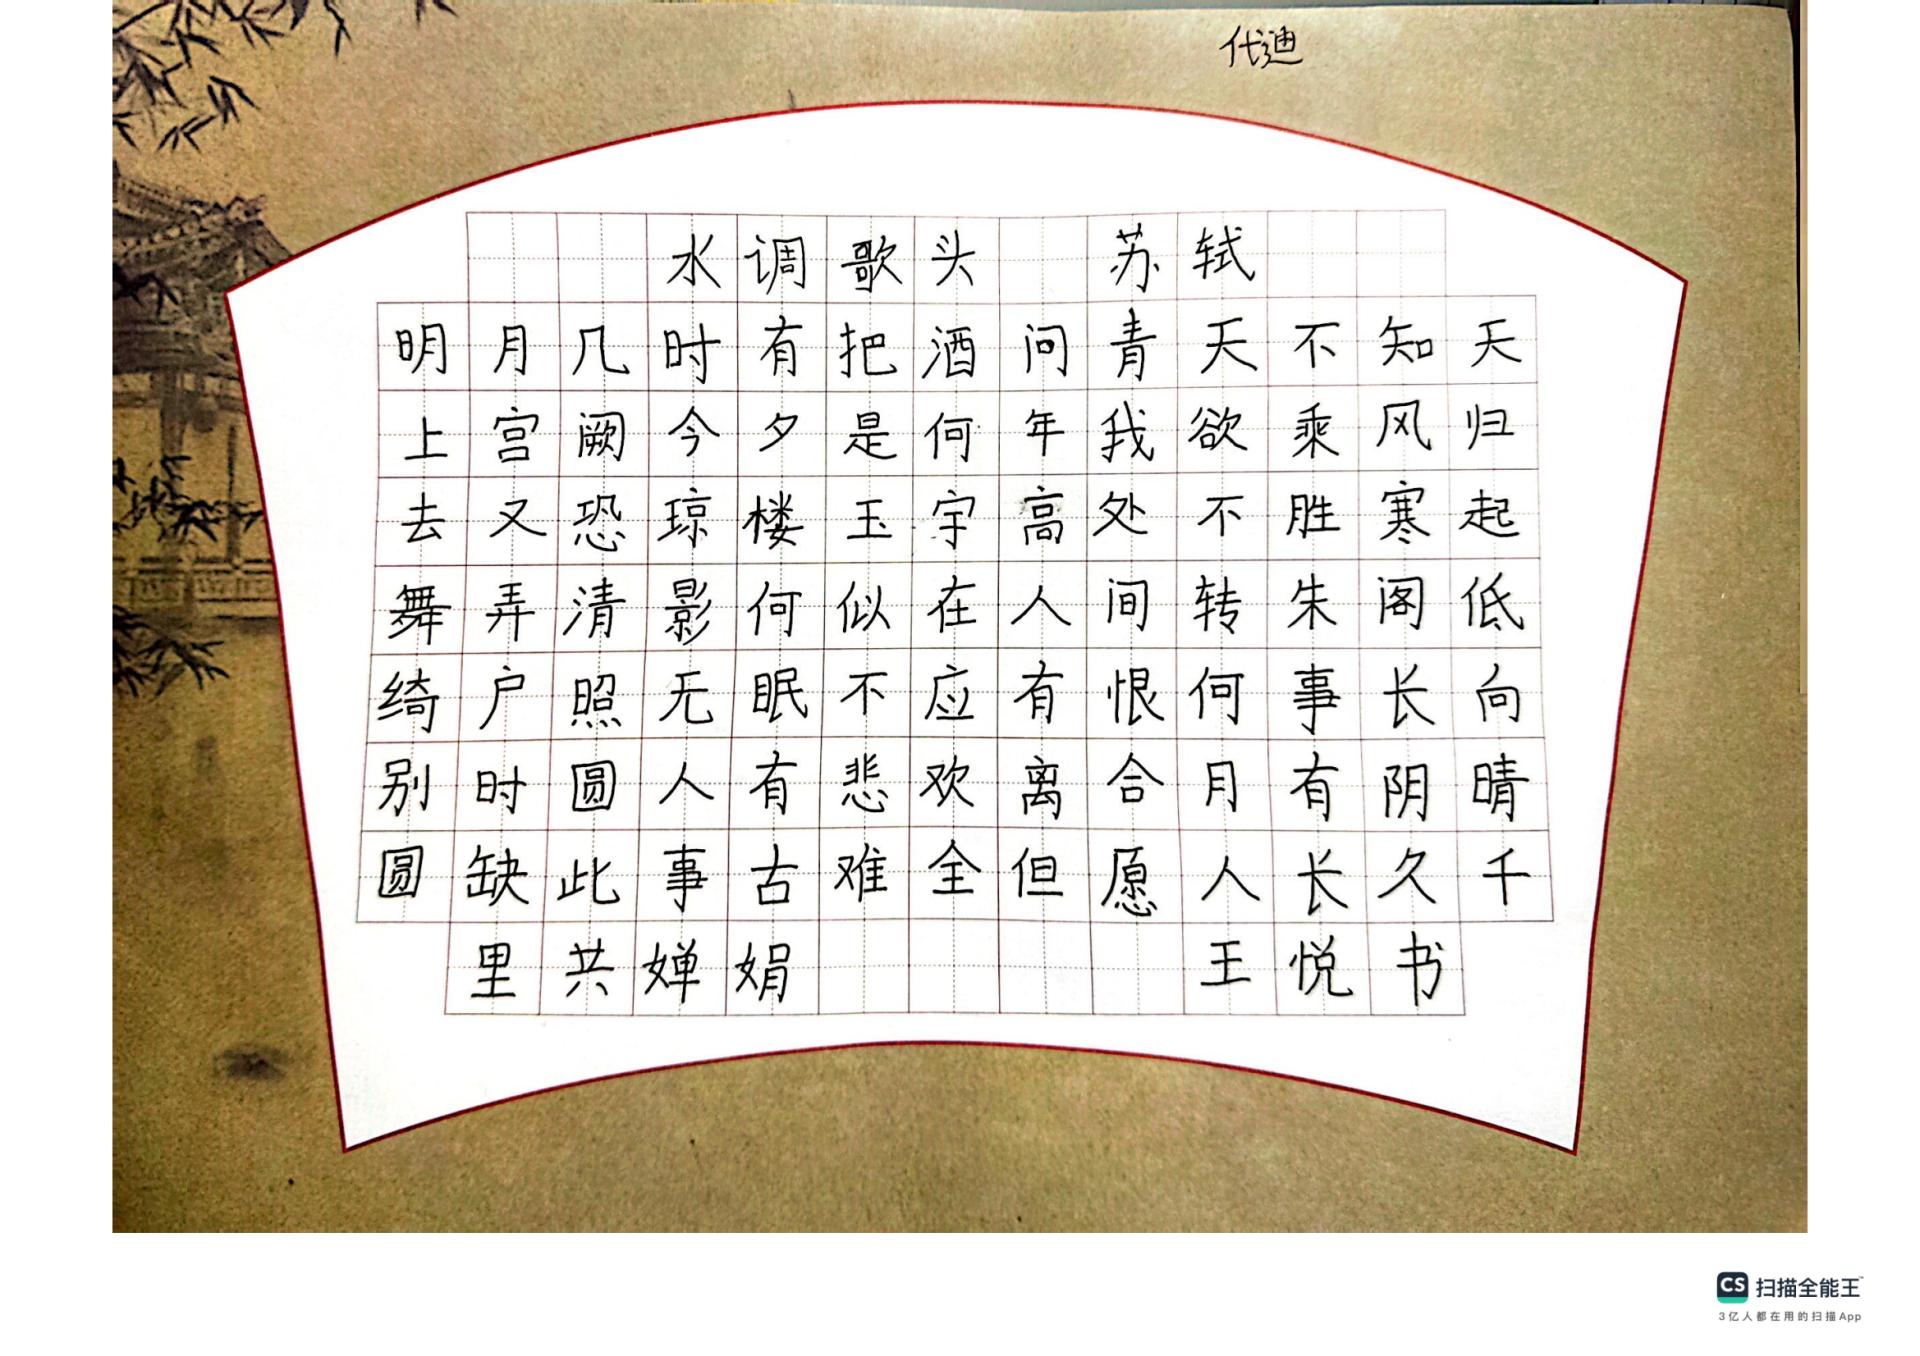 代迪
水调歌头 苏轼
明月几时有把酒问青天不知天
上宫阙今夕是何年我欲乘风归
去又恐琼楼玉宇高处不胜寒起
舞弄清影何似在人间转朱阁低
绮户照无眠不应有恨何事长向
别时圆人有悲欢离合月有阴晴
圆缺此事古难全但愿人长久千
里共婵娟 王悦书
CS 扫描全能王
3亿人都在用的扫描App